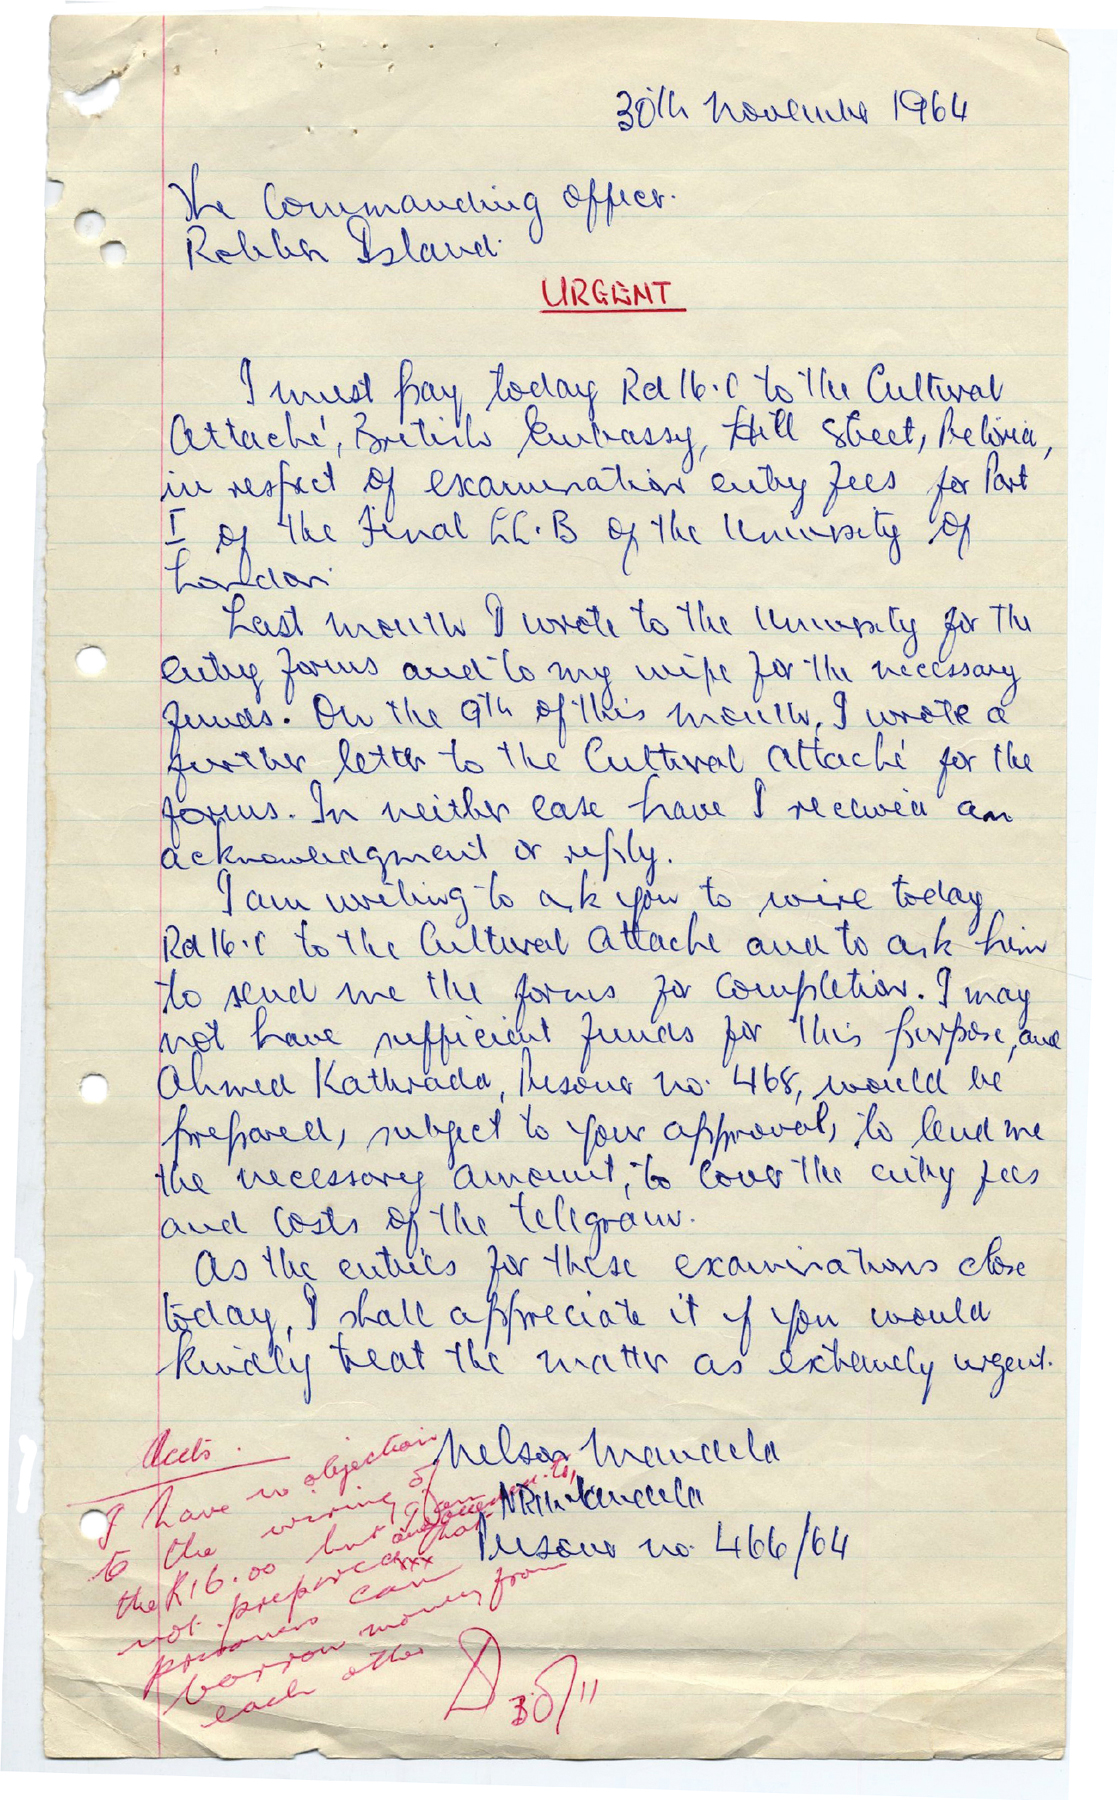 30th November 1964
The Commanding Officer.
Robben Island.
URGENT
I must pay today Rd16.0 to the Cultural
Attaché, British Embassy, Hill Street, Pretoria,
in respect of examination entry fees for Part
I of the Final LL.B of the University of
London.
Last month I wrote to the University for the
entry forms and to my wife for the necessary
funds. On the 9th of this month, I wrote a
further letter to the Cultural Attaché for the
forms. In neither case have I received an
acknowledgment or reply.
I am writing to ask you to wire today
Rd16.0 to the Cultural Attache and to ask him
to send me the forms for completion. I may
not have sufficient funds for this purpose, and
Ahmed Kathrada, Prisoner no. 468, would be
prepared, subject to your approval, to lend me
the necessary amount, to cover the entry fees
and costs of the telegram.
As the entries for these examinations close
today, I shall appreciate it if you would
kindly treat the matter as extremely urgent.
Nelson Mandela
NRMandela
Prisoner no. 466/64
I have no objection
to the wiring of
the R16.00 but I am
not prepared that
prisoners can
borrow money from
each other
30/11